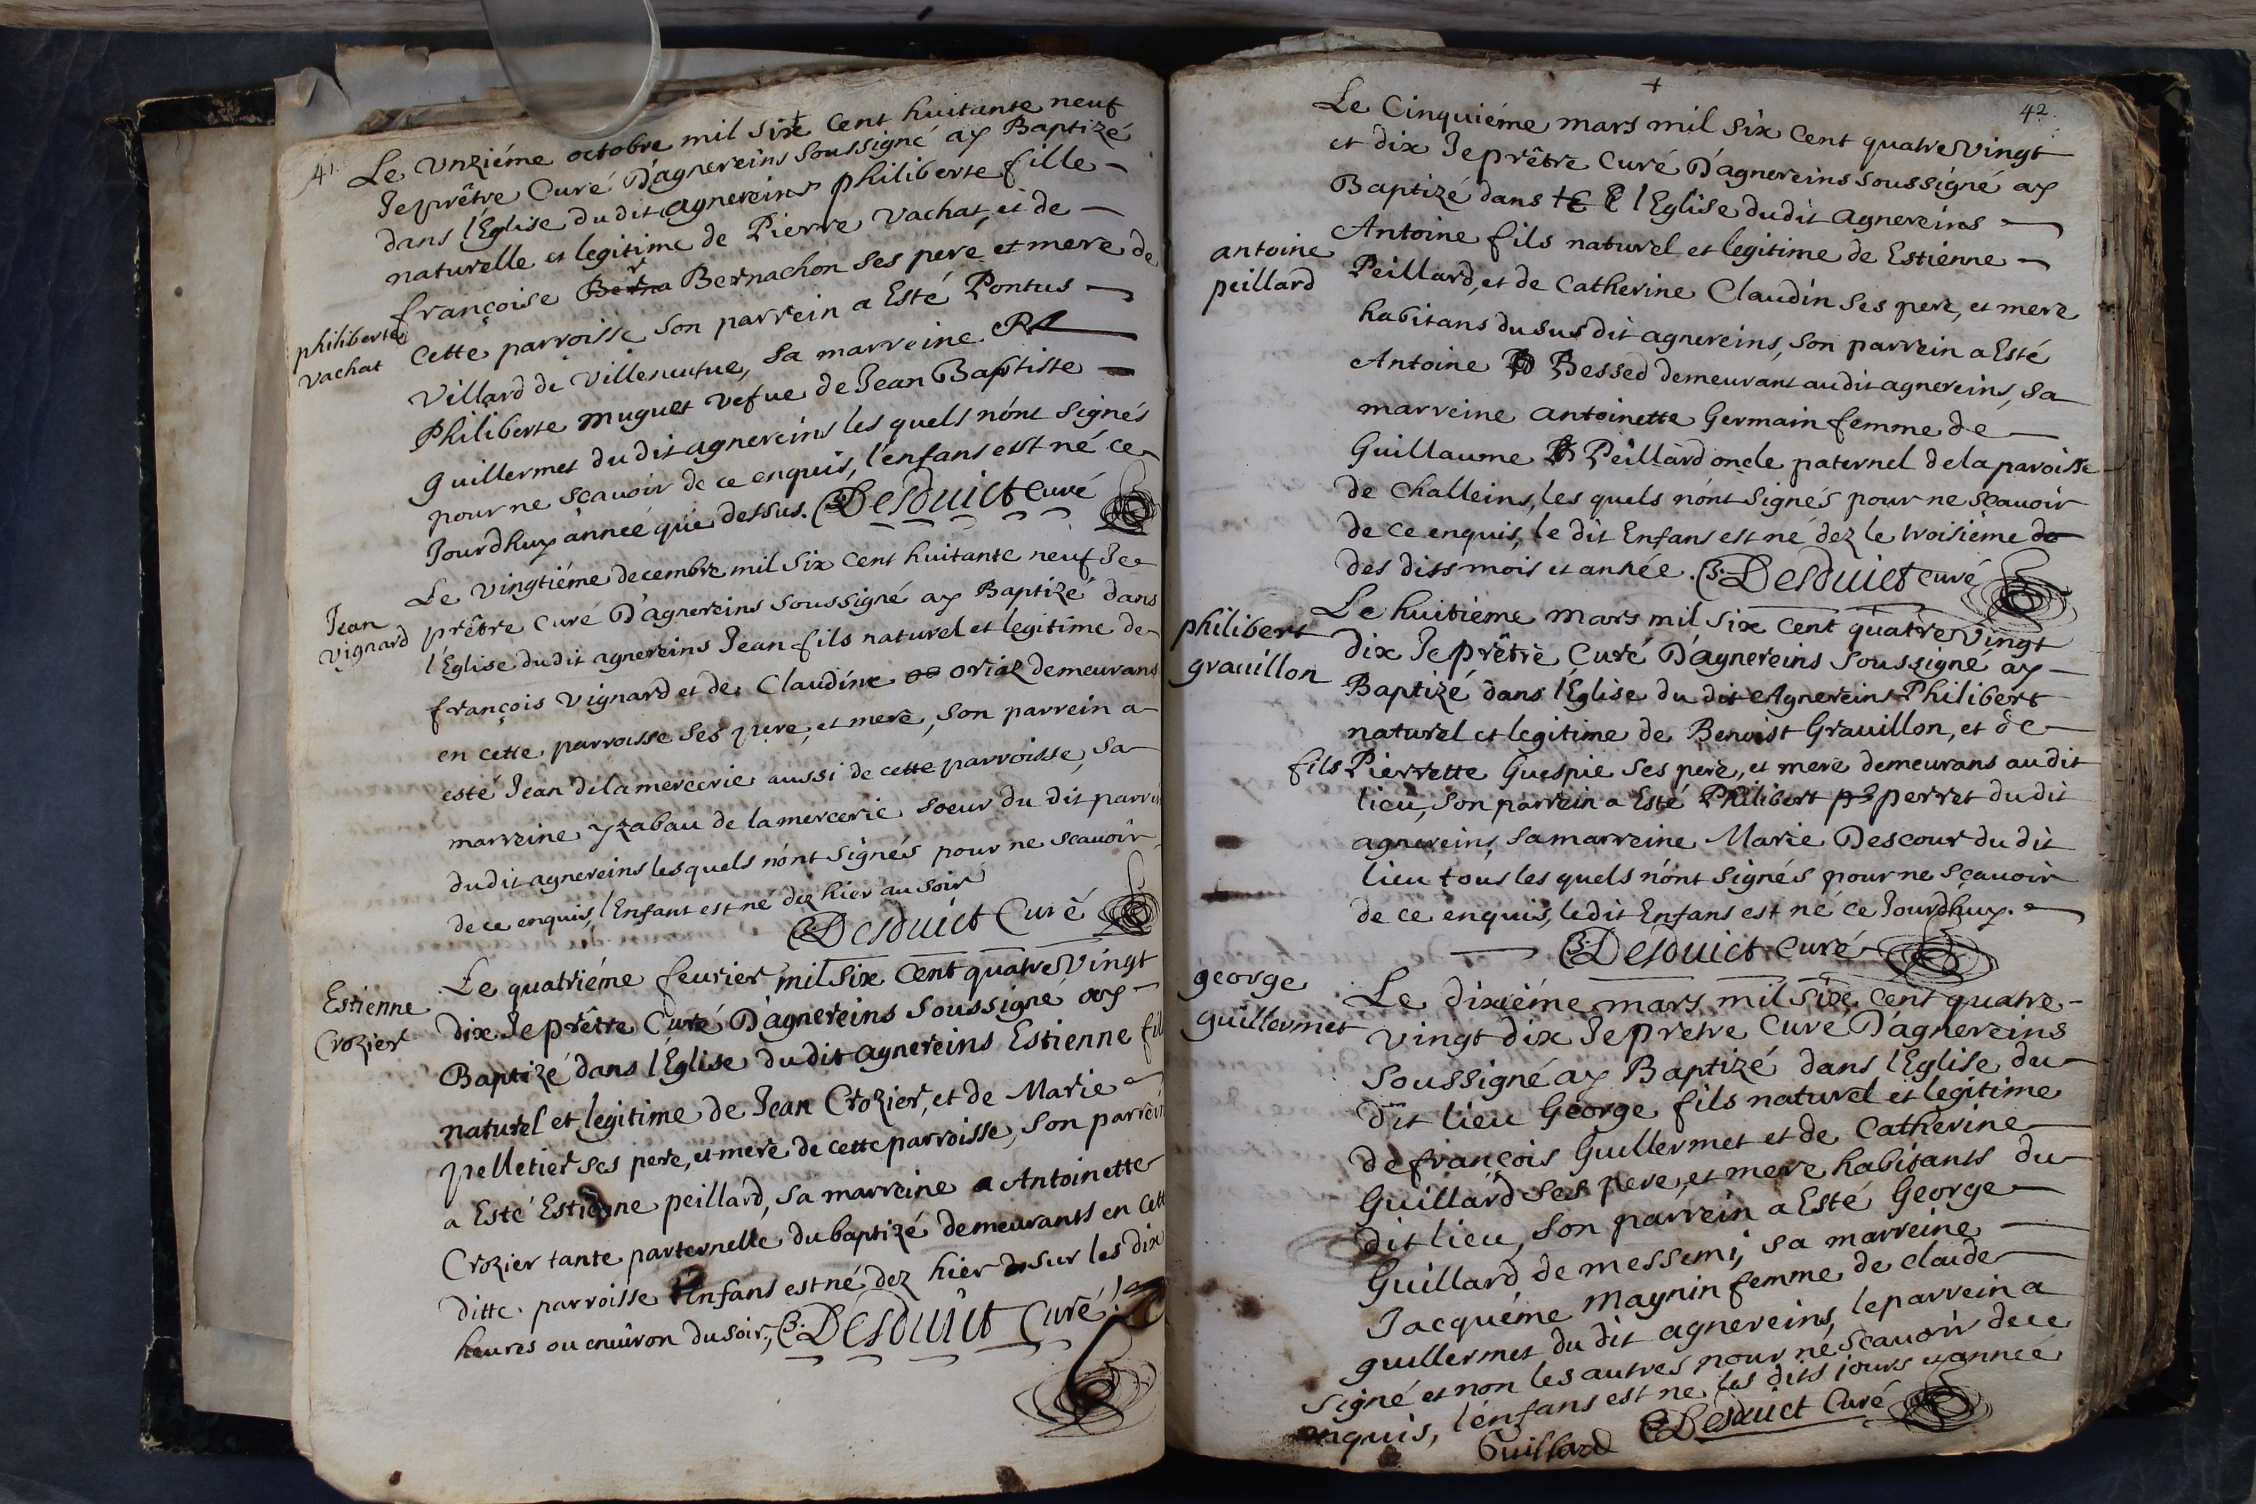 41.
Le Vnziéme octobre mil six cent huitante neuf
Je prêtre Curé D'agnereins soussigné ay Baptizé
dans l'Eglise du dit agnereins philiberte fille
naturelle et legitime de Pierre Vachat, et de
françoise Berna Bernachon ses pere et mere de
philiberte
vachat
Cette parroisse son parrein a Esté Pontus
Villard de Villeneufue, sa marreine
Philiberte muguet vefue de Jean Baptiste
guillermet du dit agnereins les quels n'ónt signés
pour ne sçauoir de ce enquis, l'enfans est né ce
Jourdhuy anneé que dessus. B. Desduict Curé
Jean
vignard
Le Vingtiéme decembre mil six cent huitante neuf Je
prêtre Curé D'agnereins soussigné ay Baptizé dans
l'Eglise du dit agnereins Jean fils naturel et legitime de
françois Vignard et de Claudine oriol demeurans
en cette parroisse ses pere, et mere, son parrein a
esté Jean de lamercerie aussi de cette parroisse, sa
marreine yzabau de lamercerie soeur du dit parrein
du dit agnereins les quels n'ónt signés pour ne scauoir
de ce enquis, l'Enfant est né dez hier au soir
B. Desduict Curé
Estienne
Crozier
Le quatriéme feurier mil six cent quatre Vingt
dix Je prêtre Curé D'agnereins soussigné ay
Baptizé dans l'Eglise du dit agnereins Estienne fils
naturel et legitime de Jean Crozier, et de Marie
pelletier ses pere, et mere de cette parroisse, son parrein
a Esté Estienne peillard, sa marreine a Antoinette
Crozier tante parternelle du baptizé demeurants en cette
ditte parroisse l'Enfans est né dez hier sur les dix
heures ou enuiron du soir, B. Desduict Curé
42
Le Cinquiéme mars mil six cent quatre Vingt
et dix Je prêtre Curé D'agnereins soussigné ay
Baptizé dans l'Eglise du dit agnereins
antoine
peillard
Antoine fils naturel et legitime de Estienne
Peillard, et de Catherine Claudin ses pere, et mere
habitans du susdit agnereins, son parrein a Esté
Antoine Bessed demeurant au dit agnereins, sa
marreine antoinette Germain femme de
Guillaume Peillard oncle paternel de la paroisse
de Challeins, les quels n'ónt signés pour ne sçauoir
de ce enquis, le dit Enfans est né dez le troisiéme
des dits mois et anneé. B. Desduict Curé
philibert
grauillon
Le huitiéme mars mil six cent quatre Vingt
dix Je prêtre Curé D'agnereins soussigné ay
Baptizé dans l'Eglise du dit Agnereins Philibert
naturel et legitime de Benoist Grauillon, et de
fils Pierrette Guespie ses pere, et mere demeurans au dit
lieu, son parrein a Esté Philibert perret du dit
agnereins, sa marreine Marie Descour du dit
lieu tous les quels n'ónt signés pour ne sçauoir
de ce enquis, le dit Enfans est né ce Jourdhuy.
B. Desduict Curé
george
guillermet
Le dixiéme mars mil six cent quatre
vingt dix Je prêtre Curé D'agnereins
soussigné ay Baptizé dans l'Eglise du
dit lieu George fils naturel et legitime
de françois Guillermet et de Catherine
Guillard ses pere, et mere habitants du
dit lieu, son parrein a Esté George
Guillard de messimi, sa marreine
Jacquéme Maynin femme de claude
guillermet du dit agnereins, le parrein a
signé et non les autres pour né scauoir de ce
enquis, l'énfans est né les dits jours et anneé
Guillard B. Desduict Curé